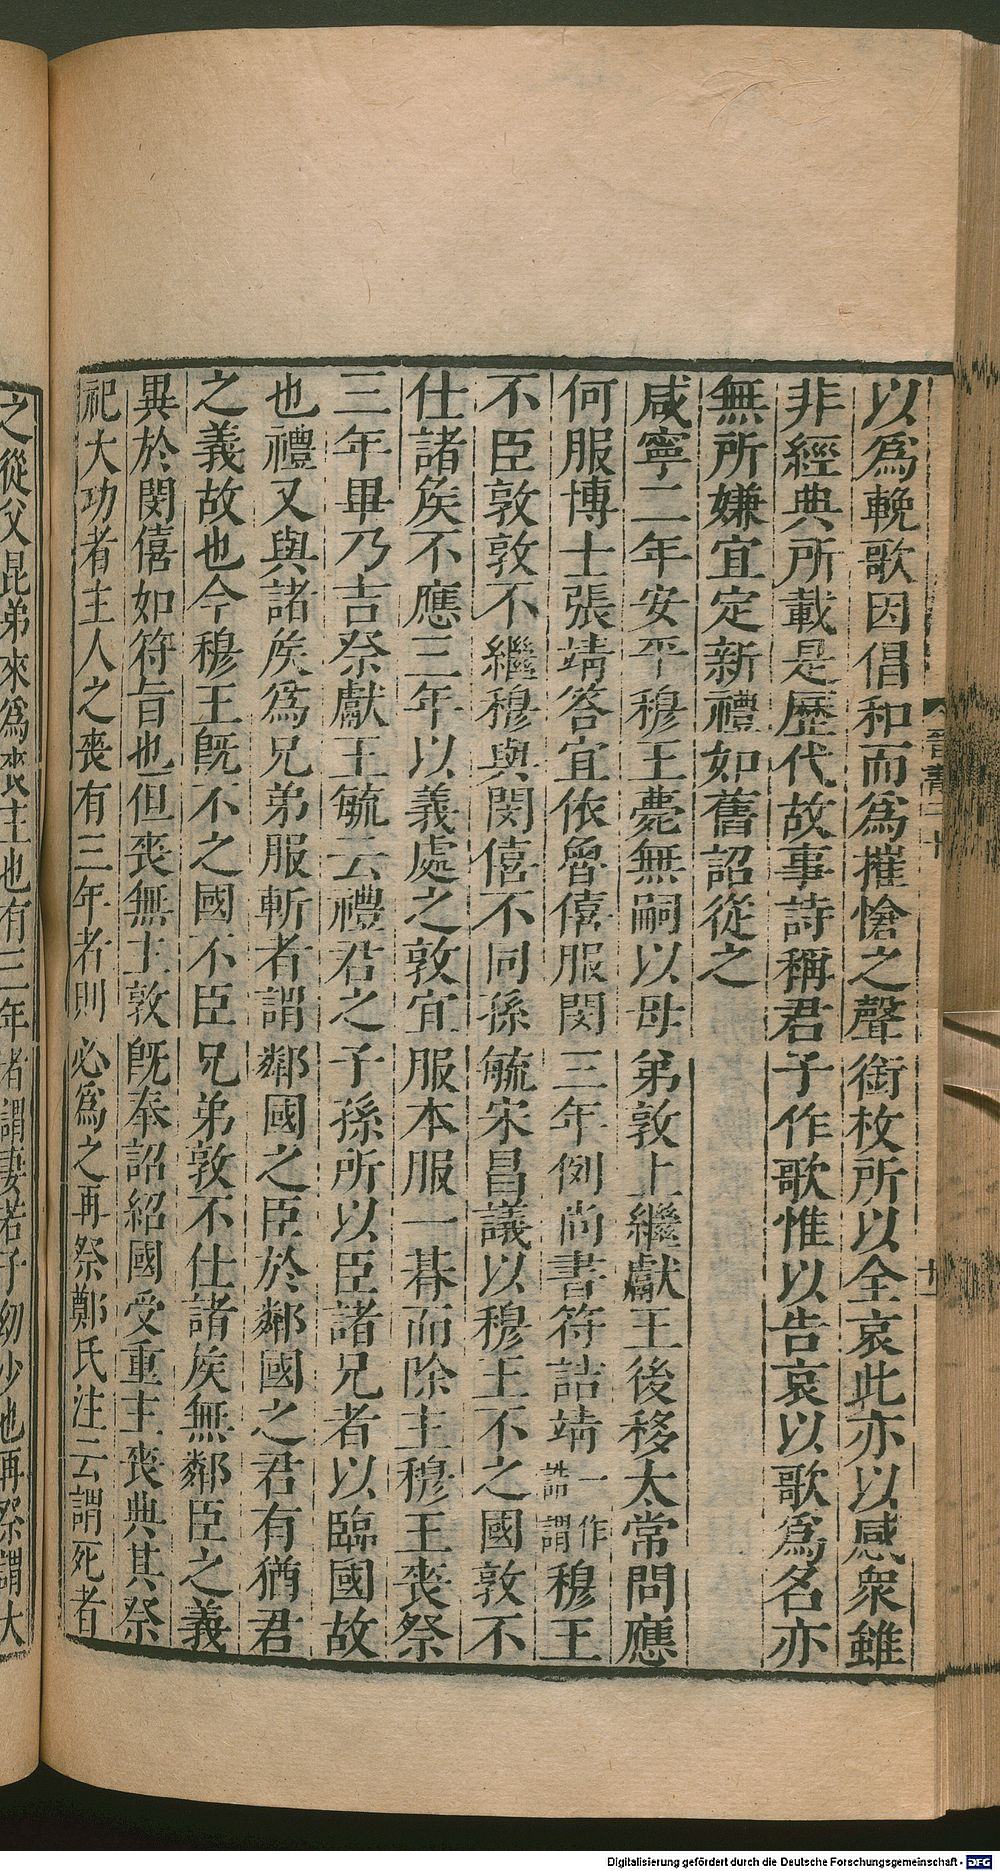 以爲輓歌因倡和而爲摧愴之聲銜枚所以全哀此亦以感衆雖
非經典所載是歷代故事詩稱君子作歌惟以告哀以歌爲名亦
無所嫌宜定新禮如舊詔從之
咸寧二年安平穆王薨無嗣以母弟敦上繼獻王後移太常問應
何服博士張靖答宜依魯僖服閔三年例尚書符詰靖一作誥謂穆王
不臣敦敦不繼穆與閔僖不同孫毓宋昌議以穆王不之國敦不
仕諸矦不應三年以義處之敦宜服本服一朞而除主穆王喪祭
三年畢乃吉祭獻王毓云禮君之子孫所以臣諸兄者以臨國故
也禮又與諸矦爲兄弟服斬者謂鄰國之臣於鄰國之君有猶君
之義故也今穆王既不之國不臣兄弟敦不仕諸矦無鄰臣之義
異於閔僖如符旨也但喪無主敦既奉詔紹國受重主喪典其祭
祀大功者主人之喪有三年者則必爲之再祭鄭氏注云謂死者
之從父昆弟來爲喪主也有三年者謂妻若子幼少也再祭謂大
晉書二十
十一
Digitalisierung gefördert durch die Deutsche Forschungsgemeinschaft - DFG